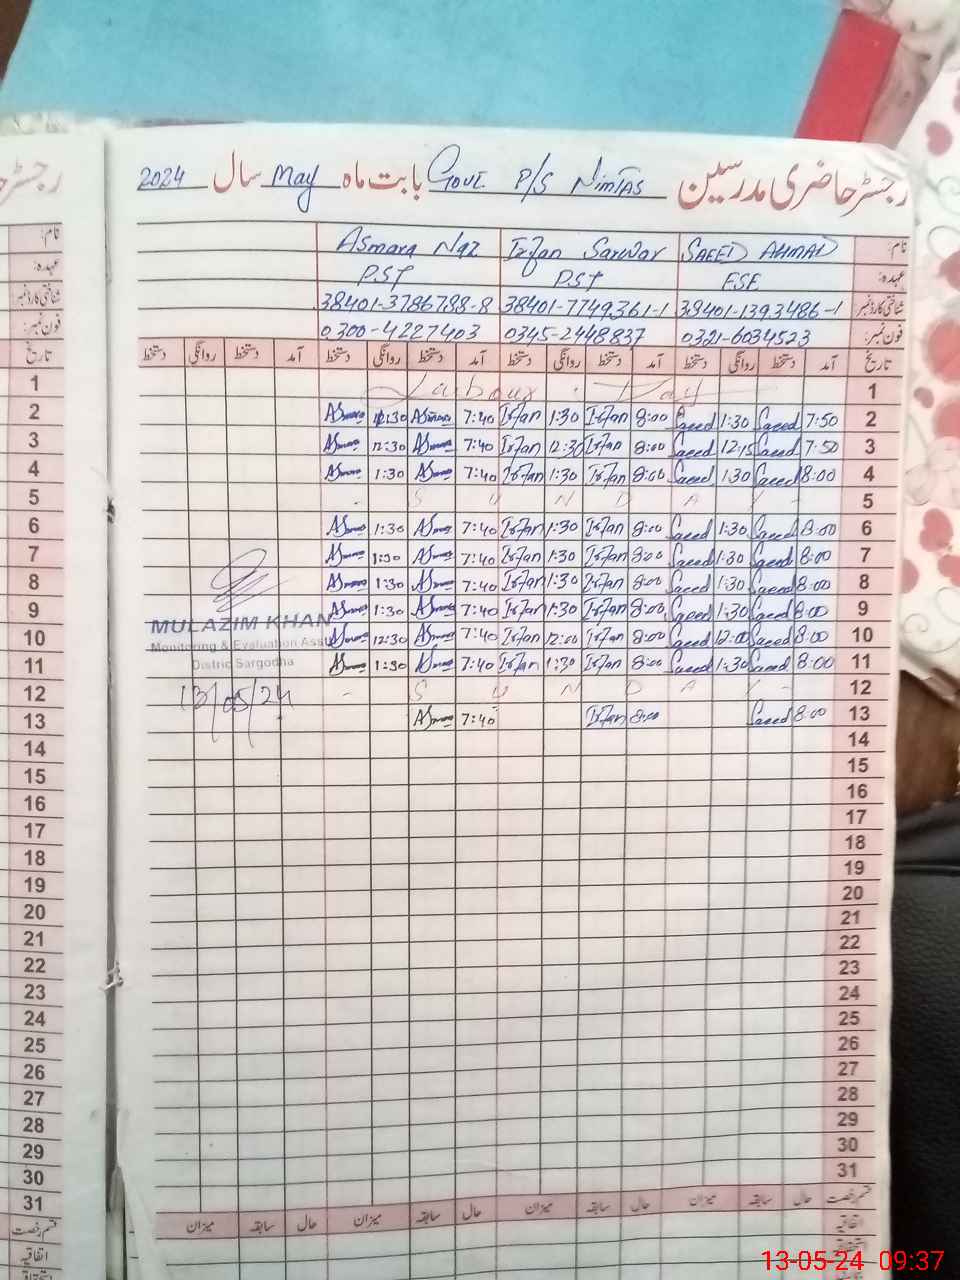 رجسٹر حاضری مدرسین Govt. P/S Nimtas بابت ماہ May سال 2024
نام: SAEED AHMAD Irfan Sarwar Asmara Naz
عہدہ: ESE PST PST
شناختی کارڈ نمبر: 38401-1393486-1 38401-7749361-1 38401-3786788-8
فون نمبر: 0321-6034523 0345-2448837 0300-4227403
تاریخ آمد دستخط روانگی دستخط آمد دستخط روانگی دستخط آمد دستخط روانگی دستخط دستخط روانگی دستخط
1 Labour Day
2 7:50 Saeed 1:30 Saeed 8:00 Irfan 1:30 Irfan 7:40 Asmara 12:30 Asmara
3 7:50 Saeed 12:15 Saeed 8:00 Irfan 12:30 Irfan 7:40 Asmara 12:30 Asmara
4 8:00 Saeed 1:30 Saeed 8:00 Irfan 1:30 Irfan 7:40 Asmara 1:30 Asmara
5 - S U N D A Y -
6 8:00 Saeed 1:30 Saeed 8:00 Irfan 1:30 Irfan 7:40 Asmara 1:30 Asmara
7 8:00 Saeed 1:30 Saeed 8:00 Irfan 1:30 Irfan 7:40 Asmara 1:30 Asmara
8 8:00 Saeed 1:30 Saeed 8:00 Irfan 1:30 Irfan 7:40 Asmara 1:30 Asmara
9 8:00 Saeed 1:30 Saeed 8:00 Irfan 1:30 Irfan 7:40 Asmara 1:30 Asmara
10 8:00 Saeed 12:00 Saeed 8:00 Irfan 12:00 Irfan 7:40 Asmara 12:30 Asmara
11 8:00 Saeed 1:30 Saeed 8:00 Irfan 1:30 Irfan 7:40 Asmara 1:30 Asmara
12 - S U N D A Y -
13 8:00 Saeed 8:00 Irfan 7:40 Asmara
MULAZIM KHAN
Monitoring & Evaluation Assi
District Sargodha
13/05/24
14
15
16
17
18
19
20
21
22
23
24
25
26
27
28
29
30
31
قسم رخصت حال سابقہ میزان حال سابقہ میزان حال سابقہ میزان حال سابقہ میزان
اتفاقیہ
استحقاقی
رجسٹر
نام:
عہدہ:
شناختی کارڈ نمبر:
فون نمبر:
تاریخ
1
2
3
4
5
6
7
8
9
10
11
12
13
14
15
16
17
18
19
20
21
22
23
24
25
26
27
28
29
30
31
قسم رخصت
اتفاقیہ
13-05-24 09:37